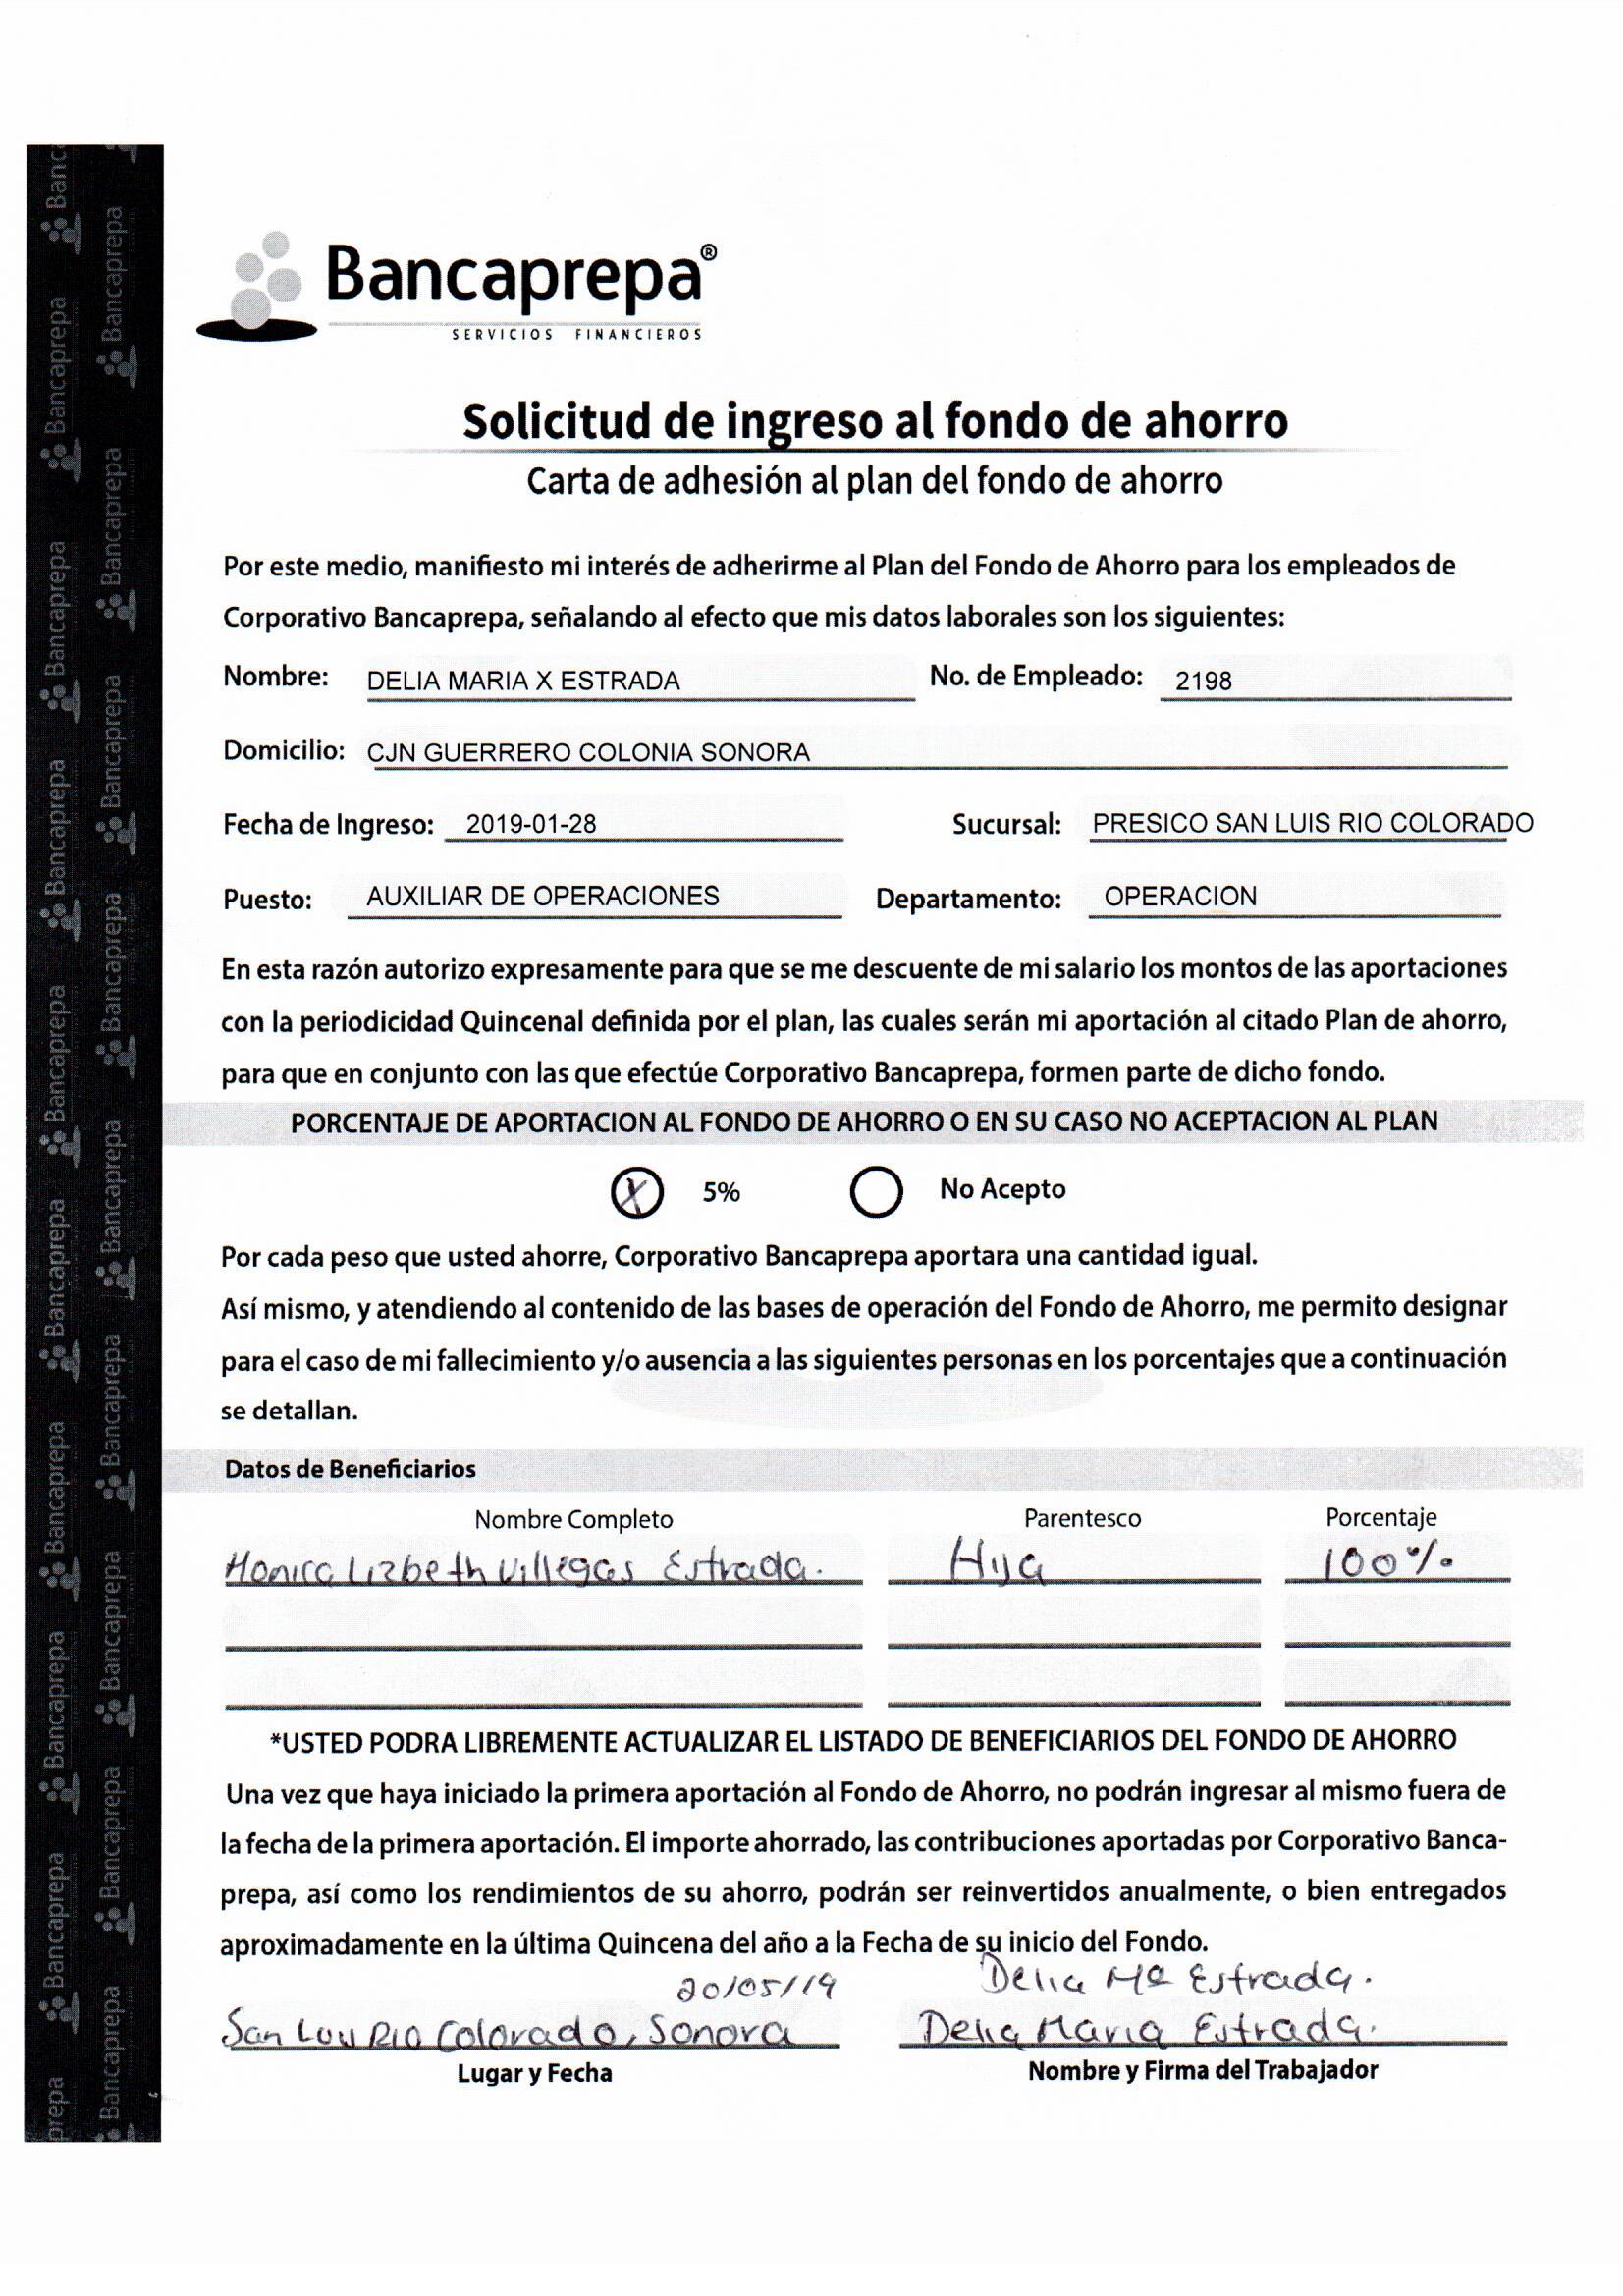 Bancaprepa®
SERVICIOS FINANCIEROS
Solicitud de ingreso al fondo de ahorro
Carta de adhesión al plan del fondo de ahorro
Por este medo, manifiesto mi interés de adherirme al Plan del Fondo de Ahorro para los empleados de
Corporativo Bancaprepa, señalando al efecto que mis datos laborales son los siguientes:
Nombre: DELIA MARIA X ESTRADA No. de Empleado: 2198
Domicilio: CJN GUERRERO COLONIA SONORA
Fecha de Ingreso: 2019-01-28 Sucursal: PRESICO SAN LUIS RIO COLORADO
Puesto: AUXILIAR DE OPERACIONES Departamento: OPERACION
En esta razón autorizo expresamente para que se me descuente de mi salario los montos de las aportaciones
con la periodicidad Quincenal definida por el plan, las cuales serán mi aportación al citado Plan de ahorro,
para que en conjunto con las que efectúe Corporativo Bancaprepa, formen parte de dicho fondo.
PORCENTAJE DE APORTACION AL FONDO DE AHORRO O EN SU CASO NO ACEPTACION AL PLAN
X 5% No Acepto
Por cada peso que usted ahorre, Corporativo Bancaprepa aportara una cantidad igual.
Así mismo, y atendiendo al contenido de las bases de operación del Fondo de Ahorro, me permito designar
para el caso de mi fallecimiento y/o ausencia a las siguientes personas en los porcentajes que a continuación
se detallan.
Datos de Beneficiarios
Nombre Completo Parentesco Porcentaje
Monica Lizbeth Villegas Estrada. Hija 100%
*USTED PODRA LIBREMENTE ACTUALIZAR EL LISTADO DE BENEFICIARIOS DEL FONDO DE AHORRO
Una vez que haya iniciado la primera aportación al Fondo de Ahorro, no podrán ingresar al mismo fuera de
la fecha de la primera aportación. El importe ahorrado, las contribuciones aportadas por Corporativo Banca-
prepa, así como los rendimientos de su ahorro, podrán ser reinvertidos anualmente, o bien entregados
aproximadamente en la última Quincena del año a la Fecha de su inicio del Fondo.
20/05/19 Delia Mª Estrada.
San Luis Rio Colorado, Sonora Delia Maria Estrada.
Lugar y Fecha Nombre y Firma del Trabajador